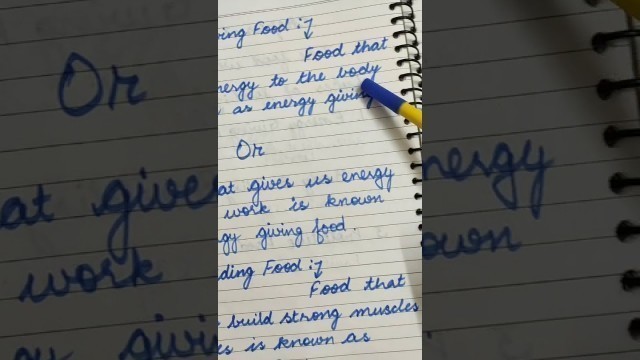 ing Food :→
Food that
ergy to the body
as energy giving
Or
at gives us energy
work is known
gy giving food.
ding Food :→
Food that
build strong muscles
es is known as